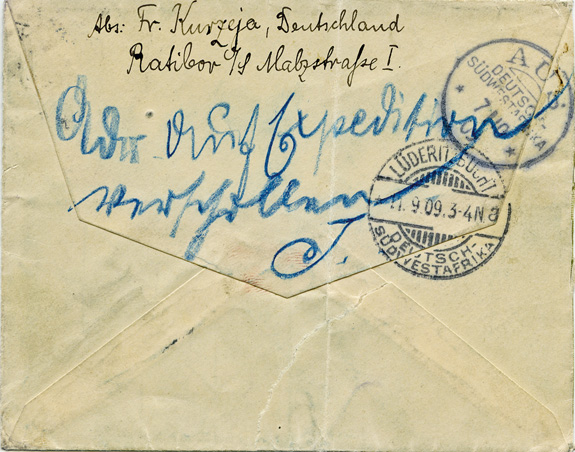 Abs: Fr. Kurzeja, Deutschland
Ratibor O/S Malzstraße I.
Adr. auf Expedition
verschollen
J.
AUS
DEUTSCH-
SÜDWESTAFRIKA
LÜDERITZBUCHT
11.9.09.3-4N a
DEUTSCH-
SÜDWESTAFRIKA